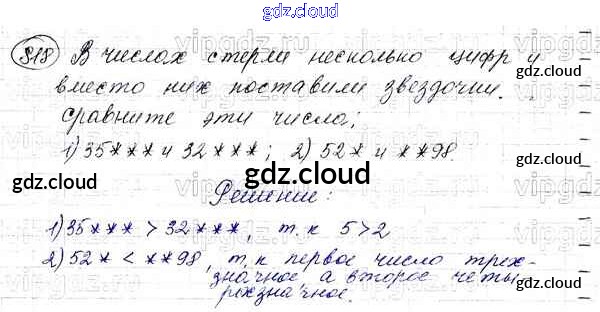 gdz.cloud
818 В числах стерли несколько цифр и
gdz.cloud
вместо них поставили звездочки.
gdz.cloud
Сравните эти числа;
1) 35*** и 32***; 2) 52* и **98.
gdz.cloud
gdz.cloud
gdz.cloud
Решение:
1) 35*** > 32***, т.к 5>2
gdz.cloud
2) 52* < **98, т.к первое число трех-
значное а второе четы
рехзначное.
gdz.cloud